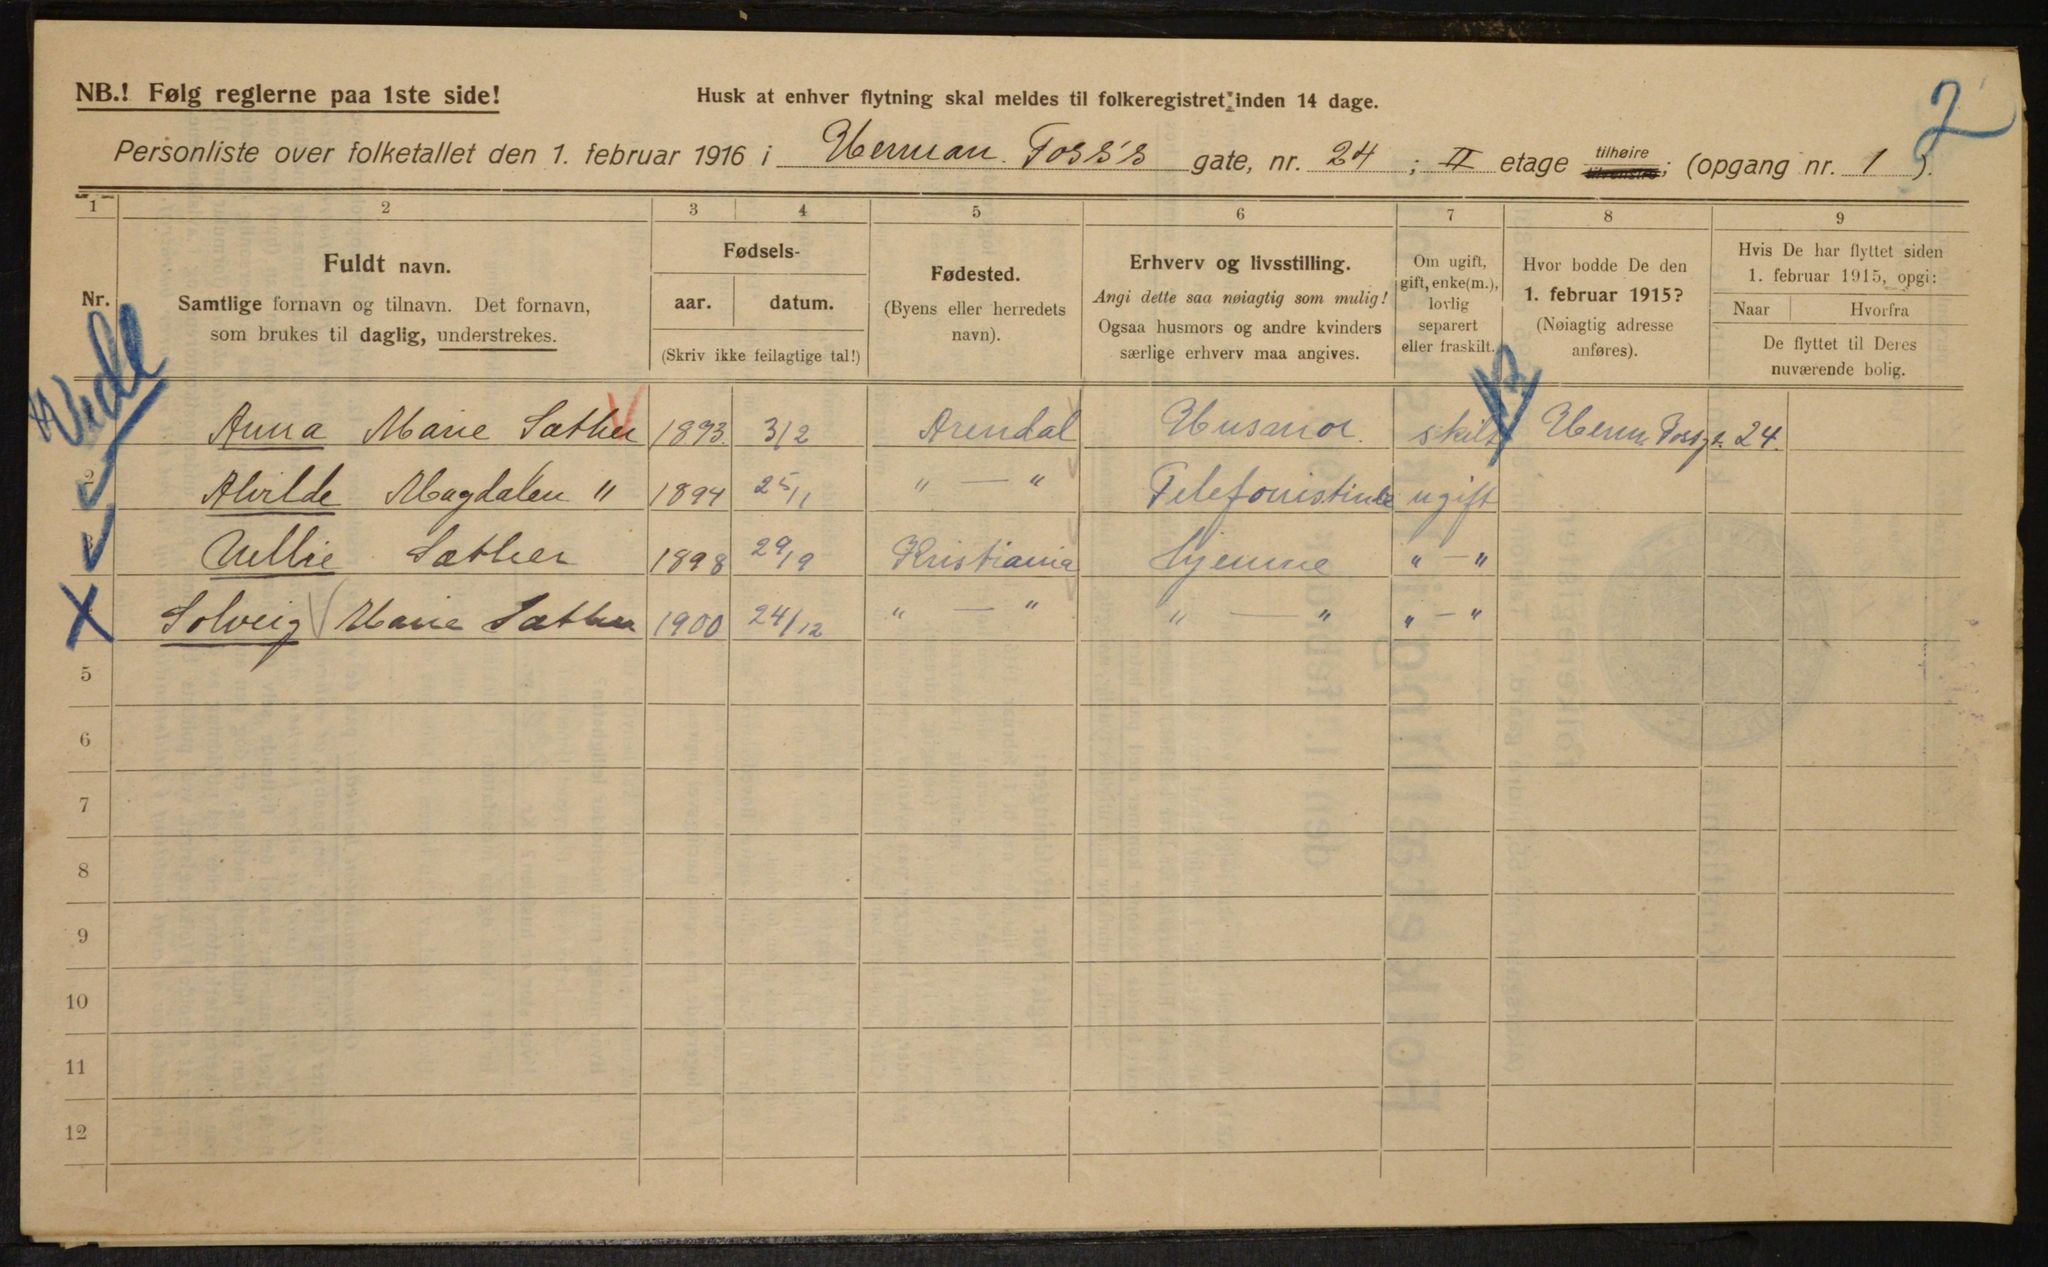 NB.! Følg reglerne paa 1ste side!
Husk at enhver flytning skal meldes til folkeregistret inden 14 dage.
2
Personliste over folketallet den 1. februar 1916 i Herman Foss's gate, nr. 24 ; II etage tilhøire tilvenstre; (opgang nr. 1 ).
1 2 3 4 5 6 7 8 9
Nr.
Fuldt navn.
Samtlige fornavn og tilnavn. Det fornavn,
som brukes til daglig, understrekes.
Fødsels-
aar. datum.
(Skriv ikke feilagtige tal!)
Fødested.
(Byens eller herredets
navn).
Erhverv og livsstilling.
Angi dette saa nøiagtig som mulig!
Ogsaa husmors og andre kvinders
særlige erhverv maa angives.
Om ugift,
gift, enke(m.),
lovlig
separert
eller fraskilt.
Hvor bodde De den
1. februar 1915?
(Nøiagtig adresse
anføres).
Hvis De har flyttet siden
1. februar 1915, opgi:
Naar Hvorfra
De flyttet til Deres
nuværende bolig.
Anna Marie Sæther 1893. 3/2 Arendal Husmor. skilt Herm. Fossg. 24.
2 Alvilde Magdalen " 1894 25/11 " — " Telefonistinde ugift
3 Nellie Sæther 1898 29/9 Kristiania Hjemme " — "
Solveig Marie Sæther 1900 24/12 " — " " — " " — "
5
6
7
8
9
10
11
12